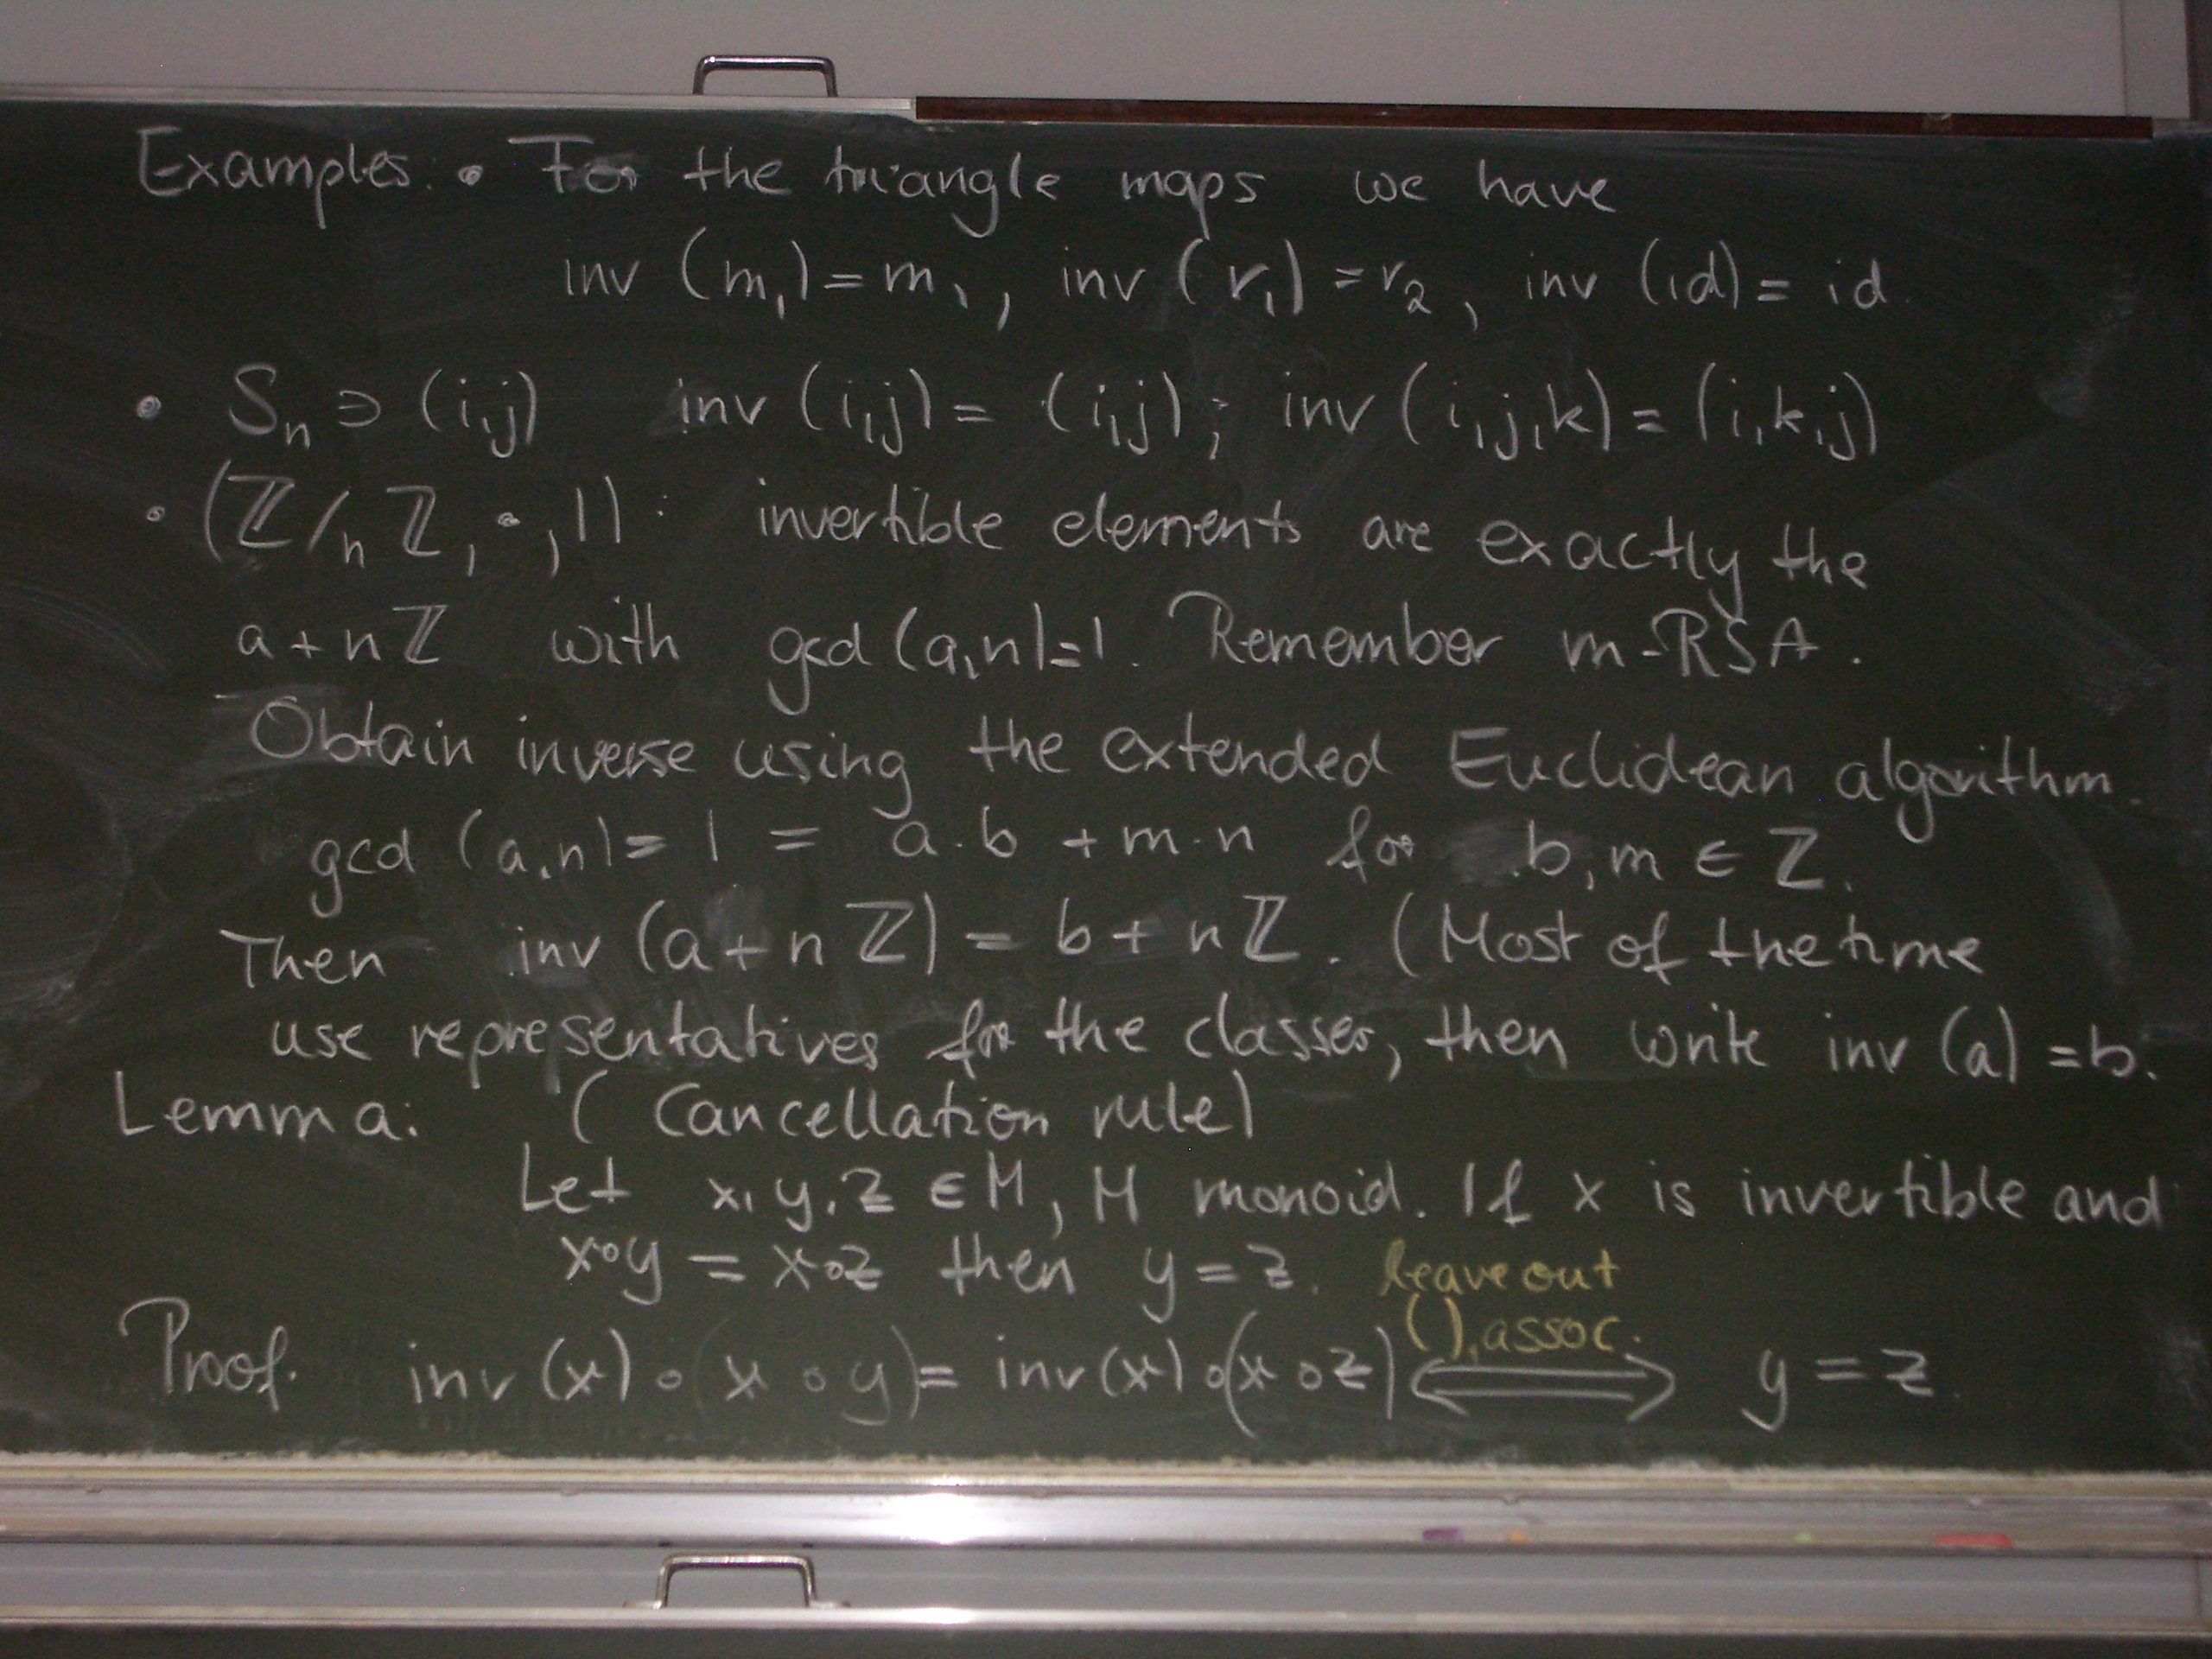 Examples: • For the triangle maps we have
inv (m₁) = m₁, inv (r₁) = r₂, inv (id) = id.
• Sₙ ∋ (i,j) inv (i,j) = (i,j); inv (i,j,k) = (i,k,j)
• (ℤ/nℤ, ·, 1): invertible elements are exactly the
a + nℤ with gcd (a,n) = 1. Remember m-RSA.
Obtain inverse using the extended Euclidean algorithm.
gcd (a,n) = 1 = a·b + m·n for b, m ∈ ℤ.
Then inv (a + nℤ) = b + nℤ. (Most of the time
use representatives for the classes, then write inv (a) = b.
Lemma: (Cancellation rule)
Let x, y, z ∈ M, M monoid. If x is invertible and
x∘y = x∘z then y = z.
leave out
(), assoc.
Proof. inv (x) ∘ (x ∘ y) = inv (x) ∘ (x ∘ z) ⟺ y = z.